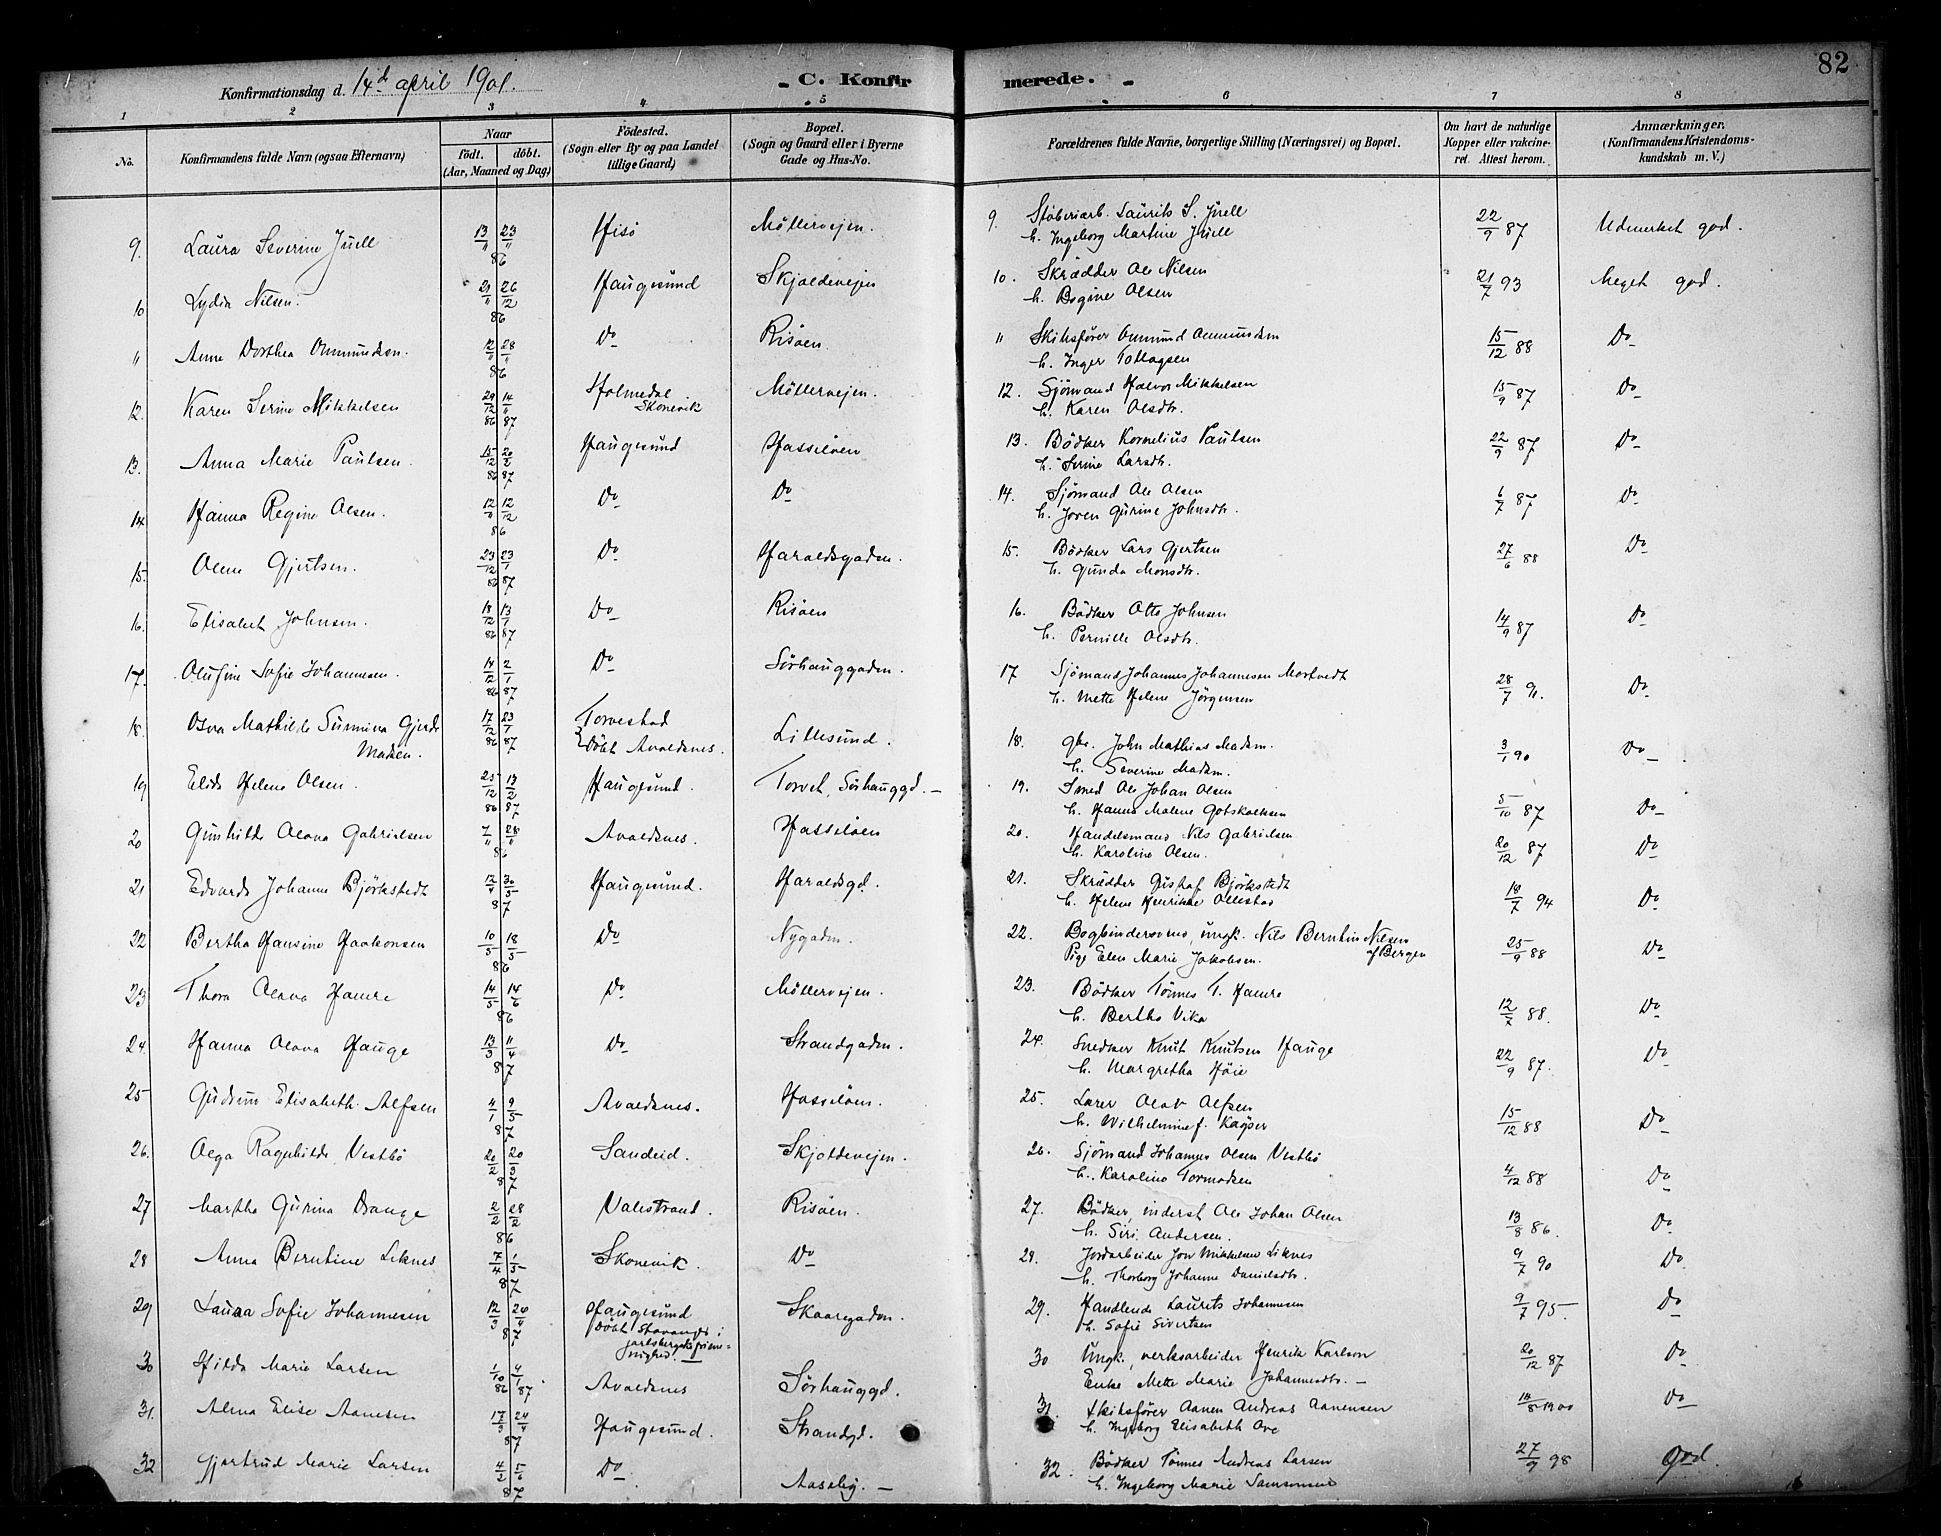 82
Konfirmationsdag d. 14d april 1901. C. Konfirmerede.
1 2 3 4 5 6 7 8
No. Konfirmandens fulde Navn (ogsaa Efternavn) Naar födt. döbt. (Aar, Maaned og Dag) Födested. (Sogn eller By og paa Landet tillige Gaard) Bopæl. (Sogn og Gaard eller i Byerne Gade og Hus-No. Forældrenes fulde Navne, borgerlige Stilling (Næringsvei) og Bopæl. Om havt de naturlige Kopper eller vakcineret. Attest herom. Anmærkninger. (Konfirmandens Kristendomskundskab m. V.)
9. Laura Severine Juell 13/11 23/11 86 Hisö Möllervejen. 9. Støberiarb. Laurits S. Juell 22/9 87 Udmerket god.
h. Ingeborg Martine Juell
10 Lydia Nilsen. 21/11 26/12 86 Haugesund Skjoldevejen 10. Skrædder Ole Nilsen 21/7 93 Meget god.
h. Bogine Olsen
11 Anne Dorthea Ommundsen. 12/11 28/11 86 Do Risöen. 11 Skibsförer Ommund Ommundsen 15/12 88 Do
h. Inger Tollagsen
12. Karen Serine Mikkelsen 29/12 86 14/11 87 Holmedal Skonevik Möllervejen. 12. Sjömand Halvor Mikkelsen 15/9 87 Do
h. Karen Olsdtr.
13. Anna Marie Paulsen. 15/12 86 20/2 87 Haugesund Hasseløen 13. Bödker Kornelius Paulsen 22/9 87 Do
h. Serine Larsdtr.
14 Hanna Regine Olsen. 12/11 12/12 86 Do Do 14. Sjömand Ole Olsen 6/7 87 Do
h. Joren Gurine Johnsdtr.
15. Oline Gjertsen. 23/12 86 23/1 87 Do Haraldsgaden. 15. Bödker Lars Gjertsen 27/6 88 Do
h. Gunda Monsdtr.
16. Elisabet Johnsen. 18/12 86 13/1 87 Do Risöen 16. Bödker Otto Johnsen 14/9 87 Do
h. Pernille Olsdtr.
17. Olufine Sofie Johannesen. 14/12 86 2/1 87 Do Sörhauggaden. 17 Sjömand Johannes Johannesen Mortvedt 28/7 91. Do
h. Mette Helene Jörgensen
18. Mathilde Sunniva Gjerde Madsen. 17/12 86 23/1 87 Torvestad Döbt Avaldsnes. Lillesund. 18. gbr. John Mathias Madsen. 3/1 90 Do
h. Severine Madsen.
19 Elida Helene Olsen. 25/12 86 13/2 87 Haugesund. Torvet, Sörhauggd. 19. Smed Ole Johan Olsen 5/10 87 Do
h. Hanna Malene Gotskalksen
20 Gunhilde Olava Gabrielsen 7/11 28/11 86 Avaldsnes. Hasseløen 20. Handelsmand Nils Gabrielsen 20/12 87 Do
h. Karoline Olsen.
21 Edvarda Johanne Björkstedt 12/4 30/5 87 Haugesund. Haraldsgd. 21. Skrædder Gustaf Björkstedt 18/7 94 Do
h. Helene Henrikke Ollestad
22 Bertha Hansine Haakonsen 10/5 18/5 86 Do Nygaden. 22. Bogbindersvend, ungk. Nils Berntin Nilsen af Bergen 25/9 88 Do
Pige Elen Marie Jakobsen.
23 Thora Olava Hamre 14/5 14/6 86 Do Möllervejen. 23. Bödker Tönnes T. Hamre 12/7 88. Do
h. Bertha Vika
24. Hanna Olava Hauge 13/3 11/4 87 Do Strandgaden. 24. Snedker Knut Knutsen Hauge 22/9 87. Do
h. Margretha Höie
25 Gudrun Elisabeth Alfsen 4/1 9/5 87 Avaldsnes. Hasseløen. 25. Lærer Olav Alfsen 15/12 88 Do
h. Wilhelmine f. Kayser
26. Olga Ragnhilde Vestbö 20/2 20/3 87 Sandeid. Skjoldevejen. 26. Sjömand Johannes Olsen Vestbö 4/12 88 Do
h. Karoline Tormodsen
27 Martha Gurina Drange 2/2 28/2 86 Valestrand. Risöen. 27. Bödker, inderst Ole Johan Olsen 13/8 86. Do
h. Siri Andersen.
28 Anna Berntine Liknes 7/4 1/5 87 Skonevik. Do 28. Jordarbeider Jon Mikkelsen Liknes 9/7 90 Do
h. Thorborg Johanne Danielsdtr.
29 Laura Sofie Johannesen 12/3 26/4 87 Haugesund döbt Stavanger i Skaaregaden. 29. Handlende Laurits Johannesen 9/7 95 Do
h. Sofie Sivertsen
30 Hilda Marie Larsen 1/10 86 4/1 87 Avaldsnes Sörhauggd. 30 Ungk., verksarbeider Henrik Karlson 20/12 87 Do
Enke Mette Marie Johannesdtr.
31. Alma Elise Aanensen 17/3 24/4 87 Haugesund. Strandgd. 31. Skibsförer Aanen Andreas Aanensen 18/8 1900 Do
h. Ingeborg Elisabeth Ove
32 Gjertrud Marie Larsen 4/2 5/6 87 Do Aaselig. 32. Bödker Tönnes Andreas Larsen 27/9 98 god.
h. Ingeborg Marie Samsonsen